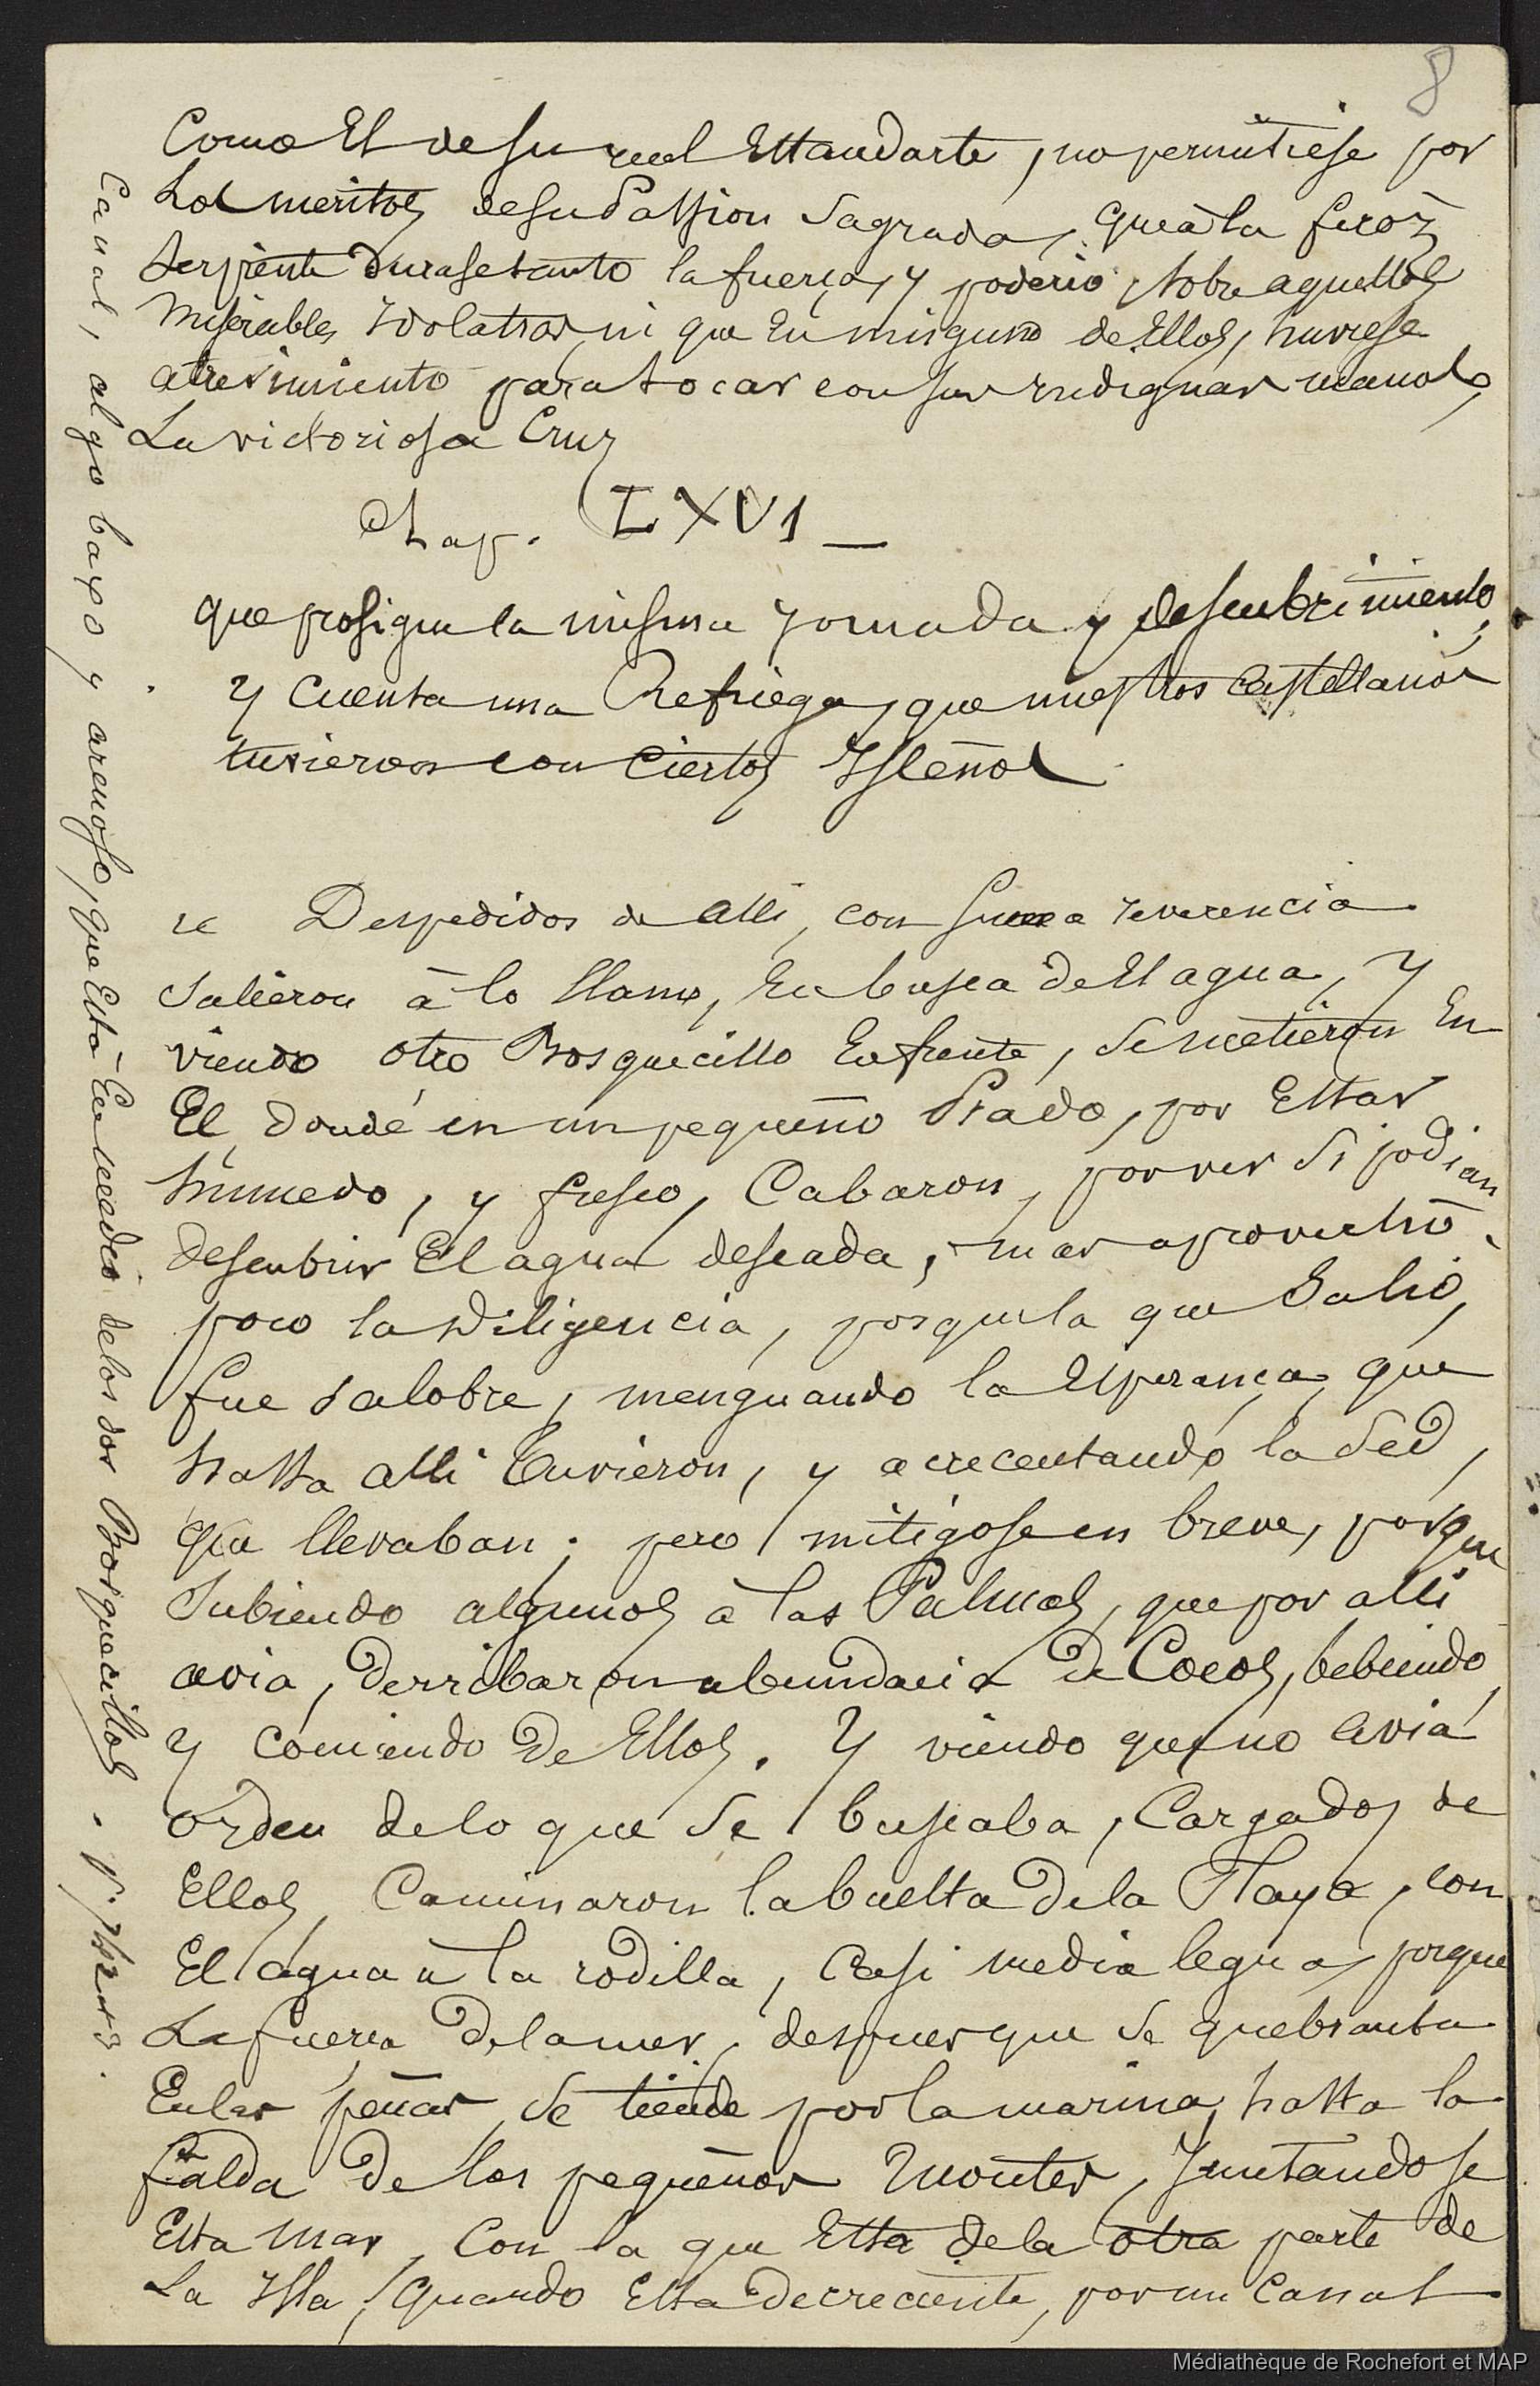 8
Como El de su real Estandarte, no permitiese por
Los meritos de su Passion Sagrada, que à la feroz
Serpiente durase tanto la fuerça, y poderio sobre aquellos
Miserables Idolatras, ni que En ninguno de Ellos, huviese
atrevimiento para tocar con sus indignas manos,
La victoriosa Cruz
Chap. LXVI _
que prosigue la misma Jornada y descubrimiento,
y cuenta una Refriega, que nuestros Castellanos
tuvieron con ciertos Isleños
Despedidos de alli, con suma reverencia
Salieron à lo llano, En busca de El agua, Y
viendo otro Bosquecillo Enfrente, se metieron En
El, donde en un pequeño Prado, por Estar
húmedo, y fresco, Cabaron, por ver Si podian
descubrir El agua deseada, mas aprovechó
poco la Diligencia, porque la que Salió,
fue salobre, menguando la Esperança, que
hasta alli tuvieron, y acrecentando la Sed,
que llevaban; pero mitigose en breve, porque
Subiendo algunos à las Palmas, que por alli
avia, derribaron abundacia de Cocos, bebiendo,
y comiendo de Ellos. Y viendo que no avia
orden de lo que Se buscaba, Cargados de
Ellos, Caminaron la buelta de la Playa, con
El agua à la rodilla, Casi media legua, porque
La fuerça de la mar, despues que se quebranta
En las peñas, Se tiende por la marina, hasta la
falda de los pequeños Montes, Juntandose
Esta mar, Con la que Esta de la otra parte de
La Isla, Quando Esta de creciente, por un Canal
Canal, algo baxo y arenoso, que Està En medio de los dos Bosquecillos.
Médiathèque de Rochefort et MAP